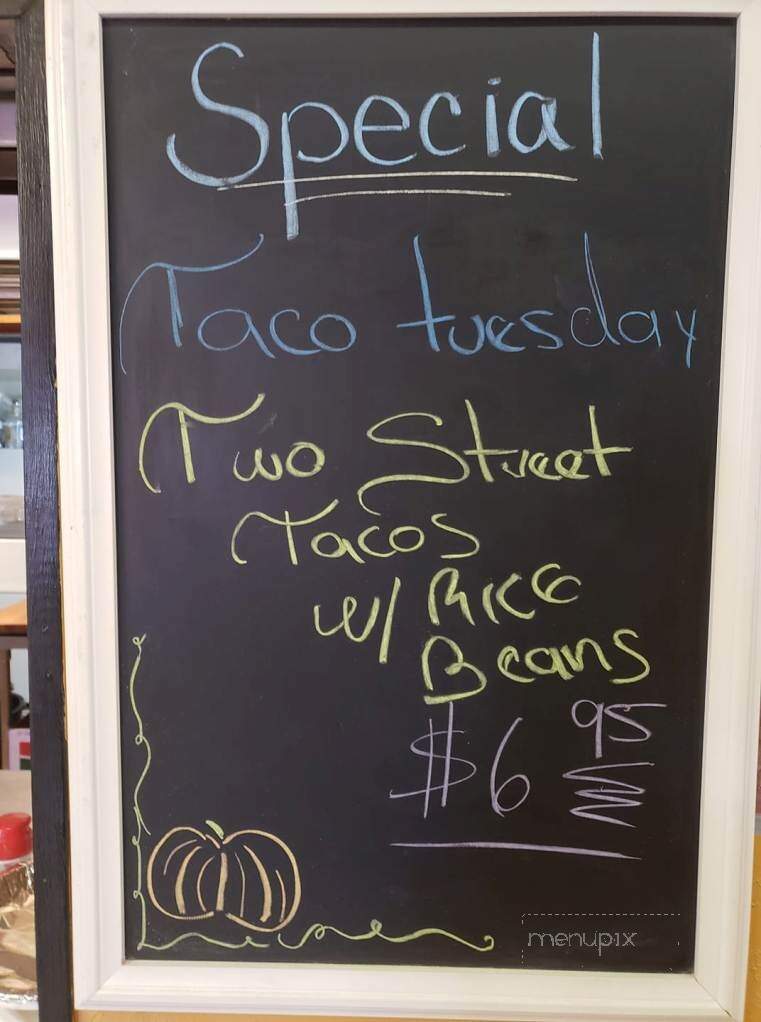 Special
Taco tuesday
Two Street
Tacos
w/ Rice
Beans
$6 95
menupix